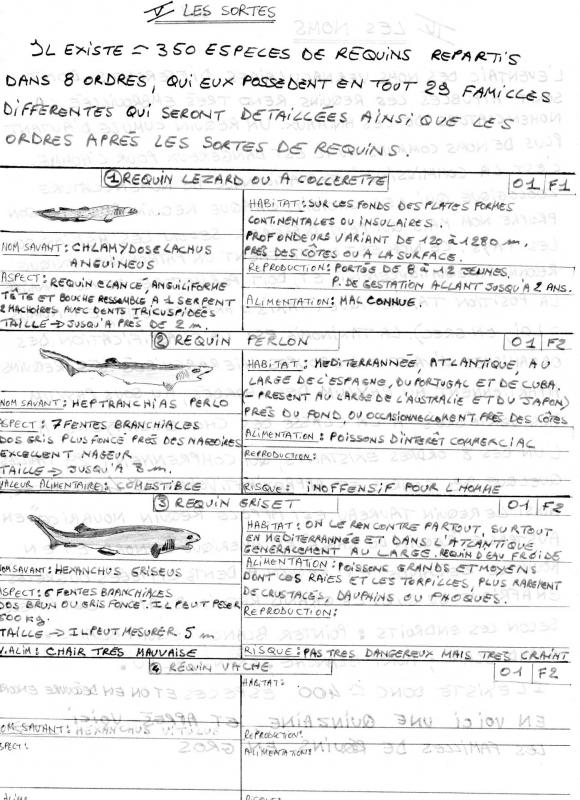 V LES SORTES
IL EXISTE ≈ 350 ESPECES DE REQUINS REPARTIS
DANS 8 ORDRES, QUI EUX POSSEDENT EN TOUT 29 FAMILLES
DIFFERENTES QUI SERONT DETAILLEES AINSI QUE LES
ORDRES APRÈS LES SORTES DE REQUINS.
① REQUIN LEZARD OU A COLLERETTE O1 F1
HABITAT: SUR LES FONDS DES PLATES FORMES
CONTINENTALES OU INSULAIRES.
PROFONDEURS VARIANT DE 120 à 1280 m.
PRÈS DES CÔTES OU A LA SURFACE.
NOM SAVANT: CHLAMYDOSELACHUS
ANGUINEUS
REPRODUCTION: PORTÉS DE 8 à 12 JEUNES
P. DE GESTATION ALLANT JUSQU'A 2 ANS.
ASPECT: REQUIN ELANCÉ, ANGUILIFORME
TÊTE ET BOUCHE RESSEMBLE A 1 SERPENT
2 MACHOIRES AVEC DENTS TRICUSPIDÉES
TAILLE → JUSQU'A PRÈS DE 2 m.
ALIMENTATION: MAL CONNUE.
② REQUIN PERLON O1 F2
HABITAT: MEDITERRANNÉE, ATLANTIQUE, AU
LARGE DE L'ESPAGNE, DU PORTUGAL ET DE CUBA.
(- PRESENT AU LARGE DE L'AUSTRALIE ET DU JAPON)
PRÈS DU FOND OU OCCASIONNELLEMENT PRÈS DES CÔTES
NOM SAVANT: HEPTRANCHIAS PERLO
ASPECT: 7 FENTES BRANCHIALES
DOS GRIS PLUS FONCÉ PRÈS DES NAGEOIRES
EXCELLENT NAGEUR
TAILLE → JUSQU'A 3 m.
ALIMENTATION: POISSONS D'INTERÊT COMMERCIAL
REPRODUCTION:
VALEUR ALIMENTAIRE: COMESTIBLE
RISQUE: INOFFENSIF POUR L'HOMME
③ REQUIN GRISET O1 F2
HABITAT: ON LE RENCONTRE PARTOUT, SURTOUT
EN MEDITERRANNÉE ET DANS L'ATLANTIQUE
GENERALEMENT AU LARGE. REQUIN D'EAU FROIDE
ALIMENTATION: POISSONS GRANDS ET MOYENS
DONT LES RAIES ET LES TORPILLES, PLUS RAREMENT
DE CRUSTACÉS, DAUPHINS OU PHOQUES.
NOM SAVANT: HEXANCHUS GRISEUS
ASPECT: 6 FENTES BRANCHIALES
DOS BRUN OU GRIS FONCÉ. IL PEUT PESER
500 kg.
TAILLE → IL PEUT MESURER 5 m
REPRODUCTION:
V. ALIM: CHAIR TRÈS MAUVAISE
RISQUE: PAS TRES DANGEREUX MAIS TRES CRAINT
④ REQUIN VACHE O1 F2
HABITAT:
NOM SAVANT:
REPRODUCTION:
ASPECT:
ALIMENTATION: